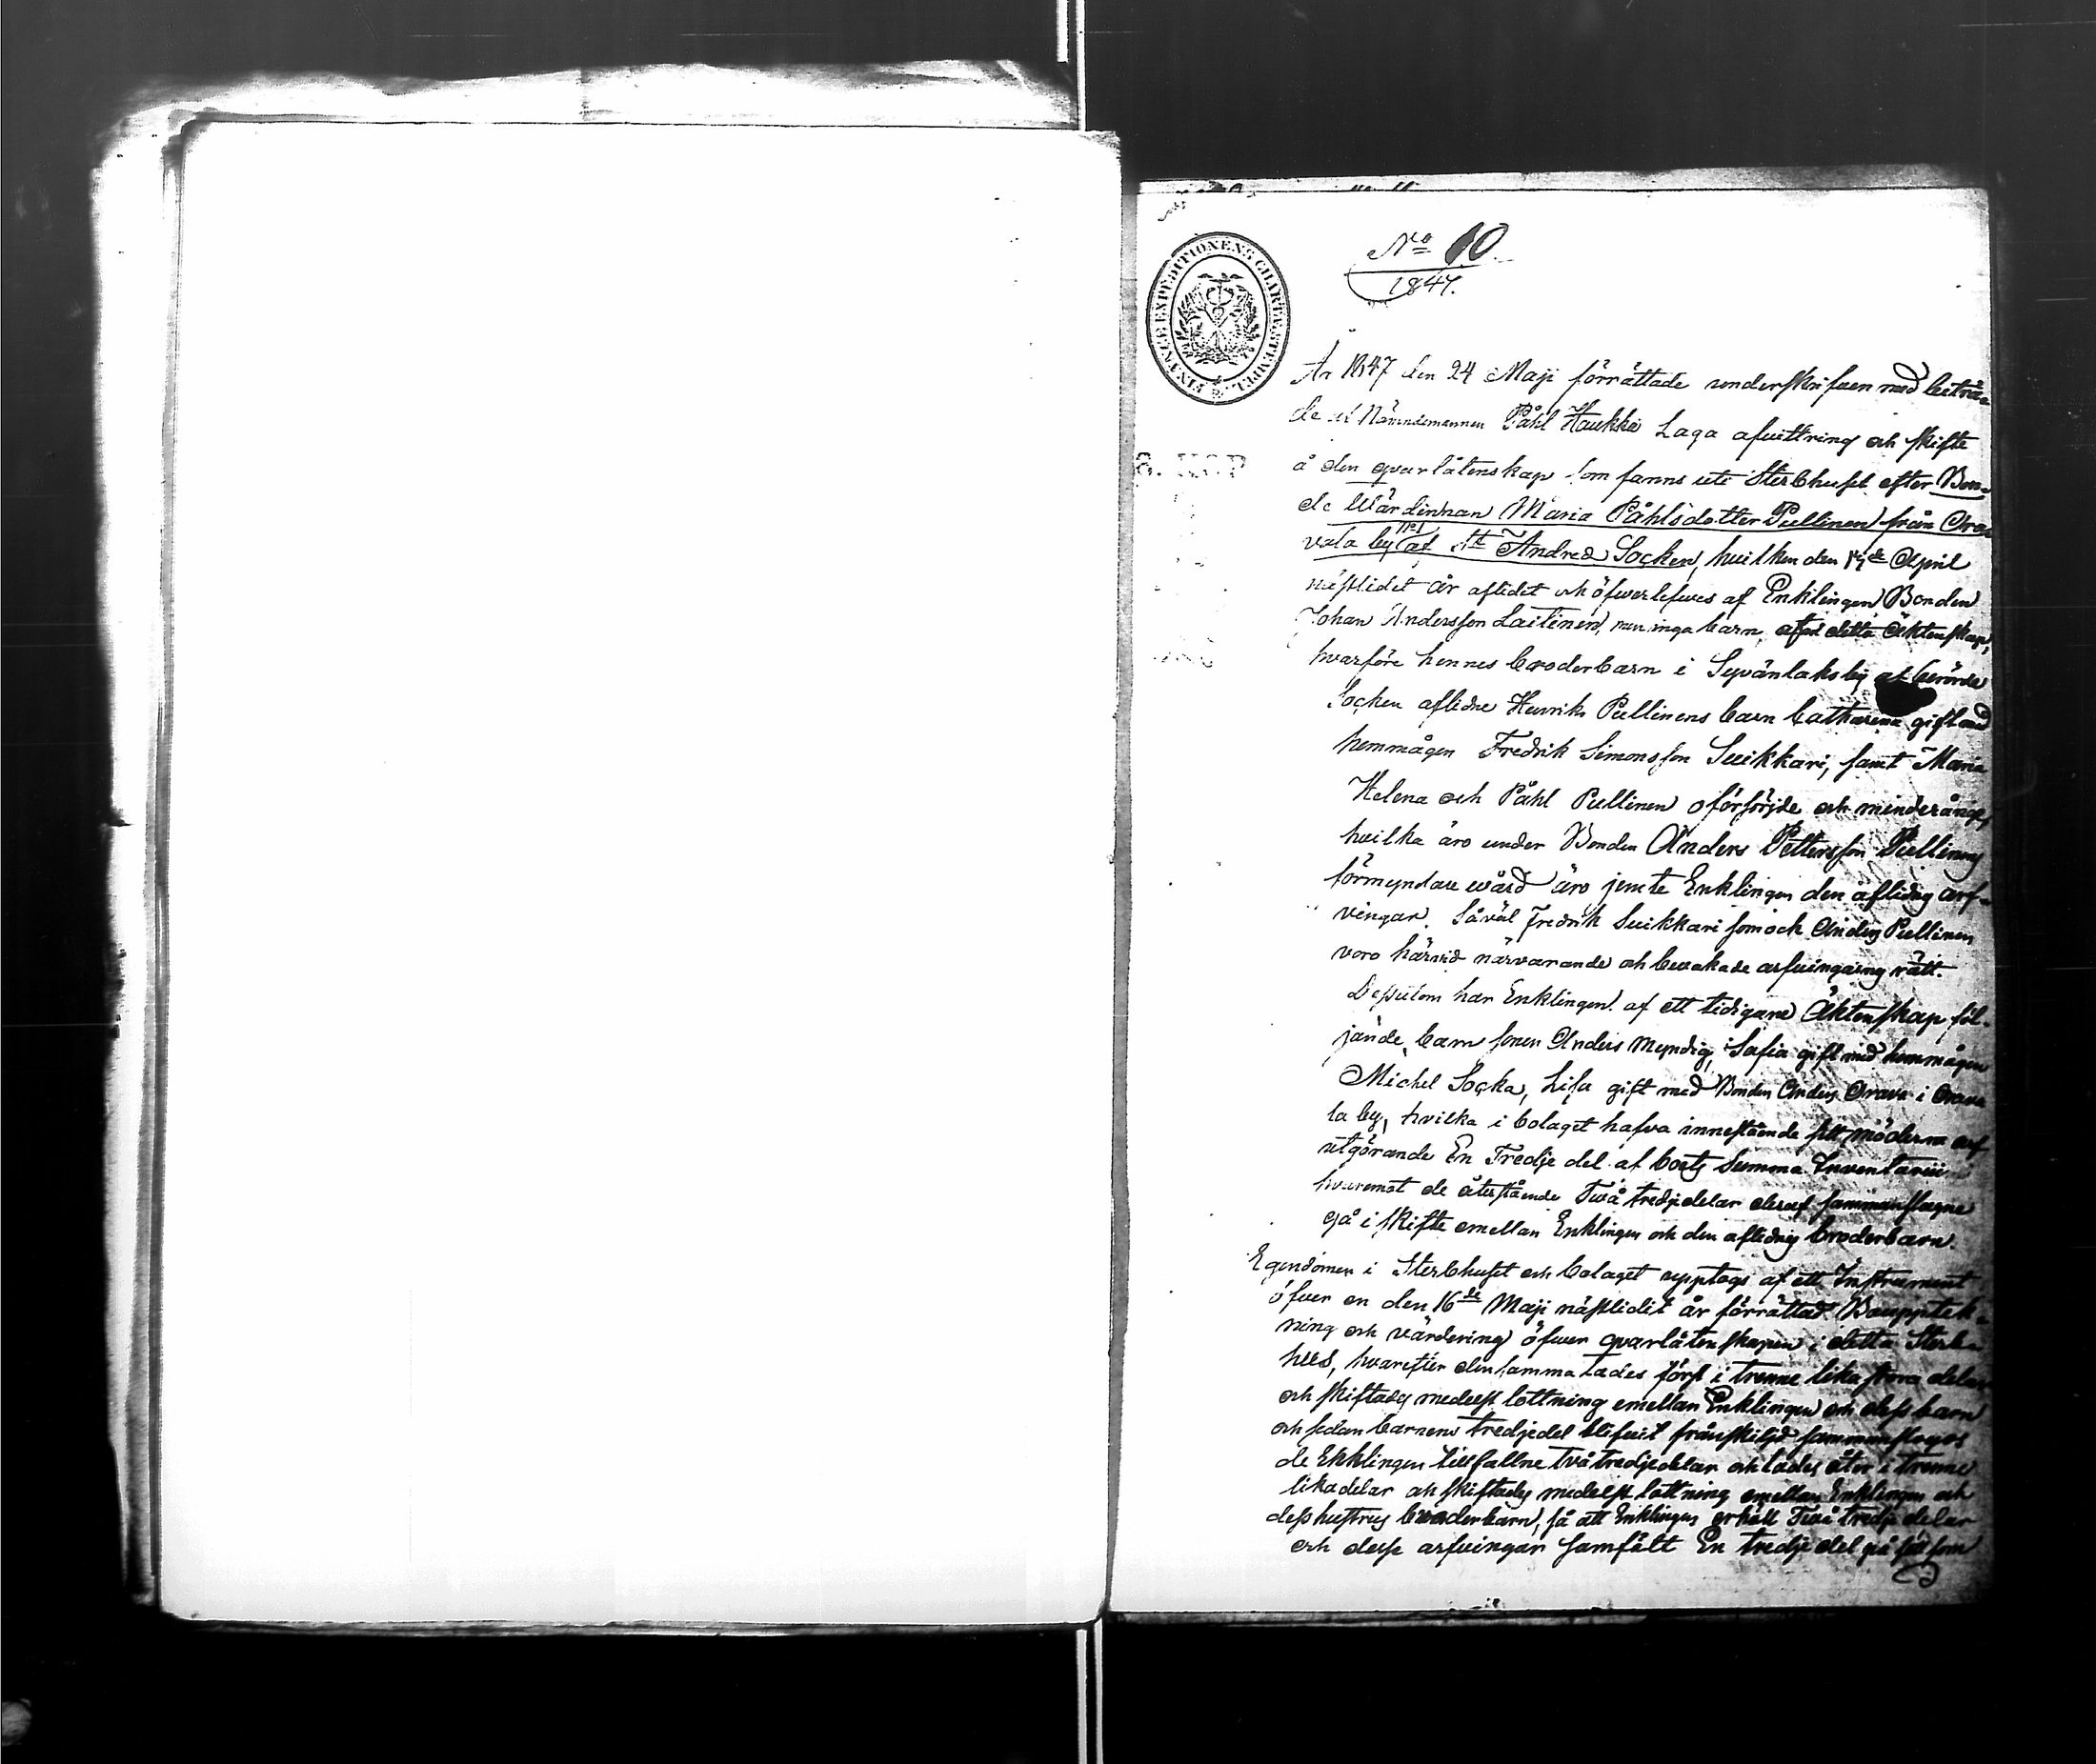 FINANCE EXPEDITIONENS CHARTÆ STEMPEL
No 10.
1847.
År 1847 den 24 Maji förrättade underskrifven med biträ-
de af Nämndemannen Påhl Haukka Laga afvittring och skifte
å den qvarlåtenskap som fanns uti Sterbhuset efter Bon-
de Wärdinnan Maria Påhlsdotter Pullinen från Ora-
vala by No 1 af St Andreæ Socken, hvilken den 17de April
nästlidet år aflidet och öfverlefves af Enklingen Bonden
Johan Andersson Laitinen, men inga barn, af detta äktenskap,
hvarföre hennes broderbarn i Syvänlaks by af berörde
Socken aflidne Henrik Pullinens barn Catharina gift med
hemmågen Fredrik Simonsson Suikkari, samt Maria
Helena och Påhl Pullinen oförsörjde och minderårige,
hvilka äro under Bonden Anders Pettersson Pullinens
förmyndare vård äro jemte Enklingen den aflidnes arf-
vingar. Såväl Fredrik Suikkari som ock Anders Pullinen
voro härvid närvarande och bevakade arfvingarnes rätt.
Dessutom har Enklingen af ett tidigare Äktenskap föl-
jande barn sonen Anders myndig, Sofia gift med hemmågen
Michel Socka, Lisa gift med Bonden Anders Orava i Orava
la by, hvilka i bolaget hafva innestående sitt möderne arf
utgörande En Tredje del af boets Summa Inventarii
hvaremot de återstående Två tredjedelar deraf sammanslagne
gå i skifte emellan Enklingen och den aflidnes broderbarn.
Egendomen i Sterbhuset och bolaget upptogs af ett Instrument
öfver en den 16de Maji nästlidit år förrättad Bouppteck-
ning och värdering öfver qvarlåtenskapen i detta Sterb-
hus, hvarefter densamma lades först i trenne lika stora delar
och skiftades medelst lottning emellan Enklingen och dess barn
och sedan barnens tredjedel blifvit frånskiljd sammanslogos
de Enklingen tillfallne två tredjedelar och lades åter i trenne
lika delar och skiftades medelst lottning emellan Enklingen och
dess hustrus broderbarn, så att Enklingen erhöll Två tredje delar
och desse arfvingar samfält En tredje del på sätt som